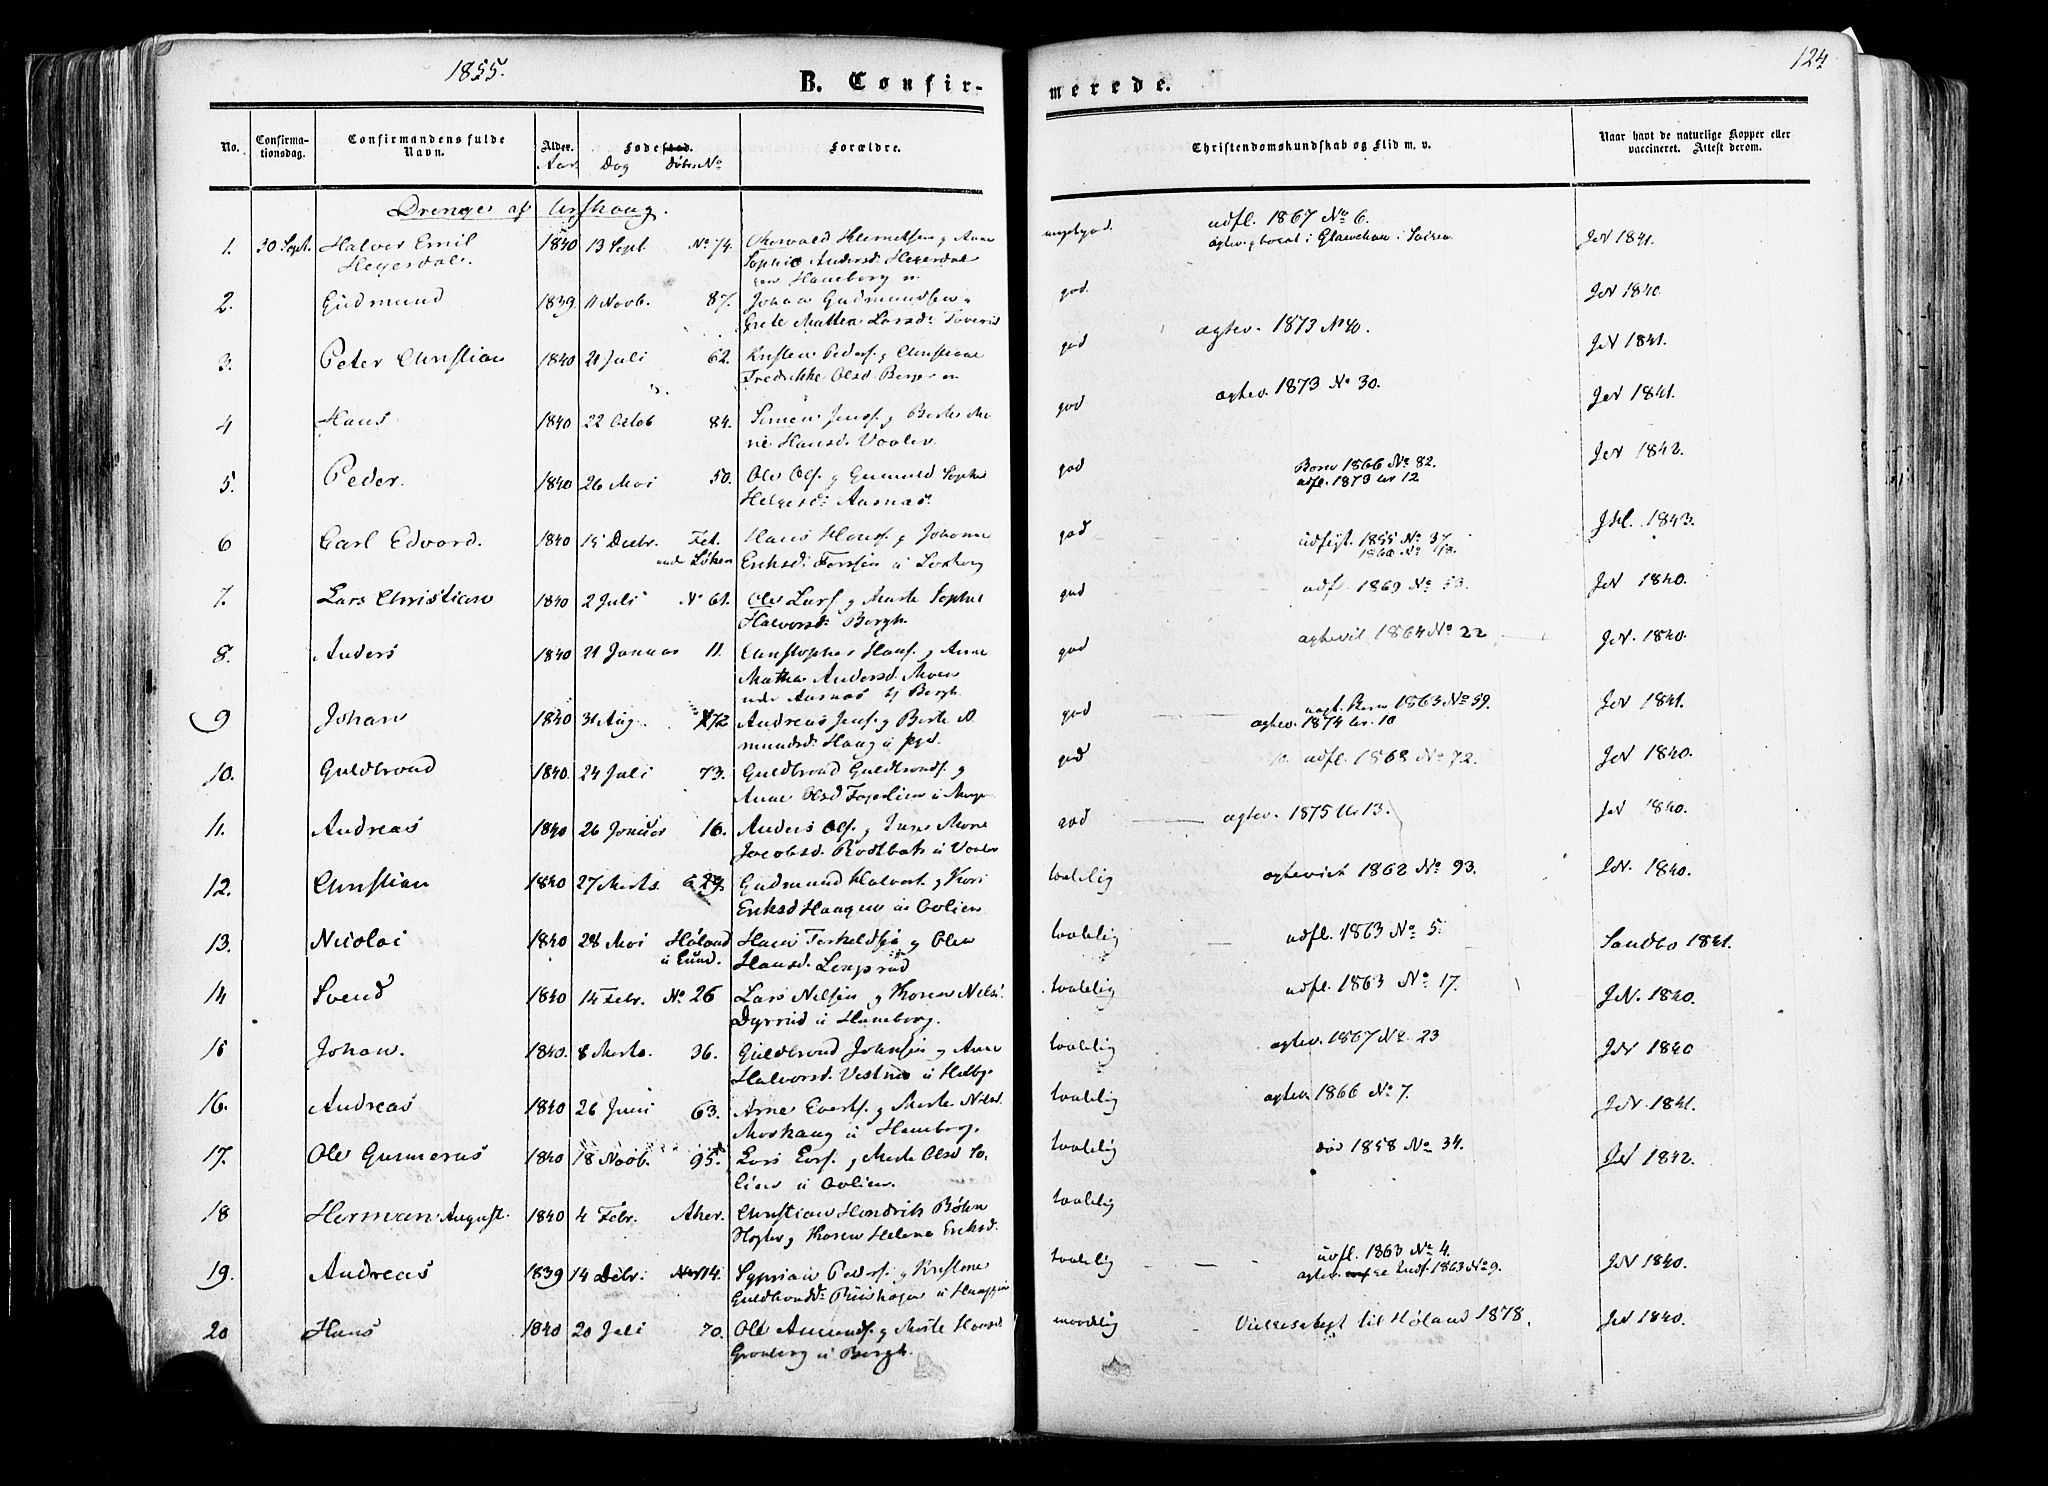 1855.
124
B. Confir-
merede.
No.
Confirma-
tionsdag.
Confirmandens fulde
Navn.
Alder.
Aar
Födestad.
Dag Döbes No
Forældre.
Christendomskundskab og Flid m. v.
Naar havt de naturlige Kopper eller
vaccineret. Attest derom.
Drenge af Urskoug.
1. 30 Sept. Halvor Emil 1840 13 Sept. No 74. & Anne
Heyerdal. Sophie Andersd: Heyerdal
Haneborg
meget god. udfl. 1867 No 6.
i Sachsen
JN 1841.
2. Gudmund 1839 11 Novb. 87. Johan Gudmundsen &
Grete Mathea Larsd:
god. JN 1840
3. Peter Christian 1840 21 Juli 62. Kristen Peders. & Christiane
Fredrikke Olsd Berger
god agtev. 1873 No 40. JN 1841.
4 Hans 1840 22 Octob 84. Simen Jens. & Berte Ma
rie Hansd. Vaaler
god agtev. 1873 No 30. JN 1841.
5. Peder. 1840 26 Mai 50. Ole Ols. & Gunnild Sophie
Helgesd: Aarnæs.
god Born 1866 No 82.
udfl. 1873 nr 12
JN 1842.
6 Carl Edvard. 1840 15 Decbr. Fet. Hans Hans. & Johanne
Eriksd:
god udflyt. 1855 No 37
JH. 1843.
7. Lars Christian 1840 2 Juli N 61. Ole Lars. & Marte Sophie
Halvorsd: Bergh.
god udfl. 1869 No 53. JN 1840.
8. Anders 1840 21 Januar 11. Christopher Hans. & Anne
Mathea Andersd. Moen
under Aarnæs Bergh.
god agteviet 1864 No 22 JN. 1840.
9 Johan 1840 31 Aug 72 Andreas Jens. & Berte A
mundsd: Haug
god 1863 No 59.
agtev. 1874 nr. 10
JN 1841.
10. Guldbrand 1840. 24 Juli 73. Guldbrand Guldbrands. &
Anne Olsd Fagerlien
god udfl. 1868 No 72. JN 1840.
11. Andreas 1840 26 Januar 16. Anders Ols. & Anne Marie
Jacobsd. u Vaaler
god agtev. 1875 Nr 13. JN 1840.
12. Christian 1840 27 Marts 29. Gudmund Halvors. & Kari
Eriksd Haugen u Aulien
taalelig agteviet 1862 No 93. JN. 1840.
13. Nicolai 1840 28 Mai Høland Hans Terkeldsen & Olea
Hansd.
taalelig udfl. 1863 No 5. Sandbo 1841.
14 Svend 1840 14 Febr. No 26 Lars Nilsen & Karen Nilsd.
Dyrrud u Haneborg.
taalelig udfl. 1863 No 17. JN. 1840.
15 Johan. 1840. 8 Marts. 36. Guldbrand Johnsen & Anne
Halvorsd. Vestnes
taalelig agtev. 1867 No. 23 JN 1840
16. Andreas 1840 26 Juni 63. Arne Everts. & Marte Nilsd.
Moshaug u Haneborg.
taalelig agtev 1866 No 7. JN. 1841.
17. Ole Gunnerus 1840 18 Novb. 95. Lars Lars. & Marte Olsd
u Aulien.
taalelig død 1858 No 34. JN 1842.
18 Herman August. 1840 4 Febr. Aker. Christian Hendrik Böhn
& Karen Helene Eriksd.
taalelig
19. Andreas 1839 14 Debr: 114. Syprian Peders. & Kristine
Guldbrandsd:
taalelig udfl. 1863 No 4.
agtev. 1863 No 9.
JN 1840.
20 Hans 1840 20 Juli 70. Ole Amunds. & Marte Hansd.
Gronberg u Bergh.
maadelig til Høland 1878. JN 1840.